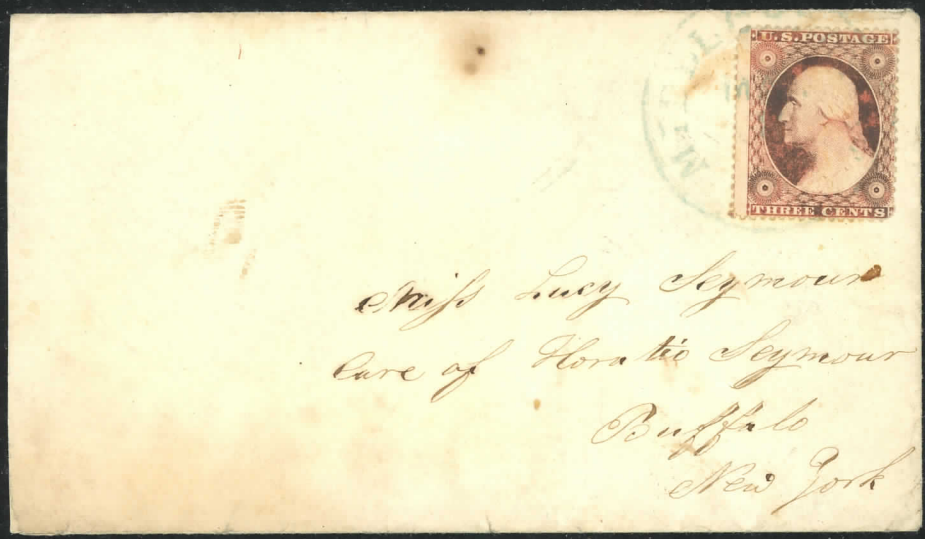 U.S. POSTAGE
THREE CENTS
Miss Lucy Seymour
Care of Horatio Seymour
Buffalo
New York